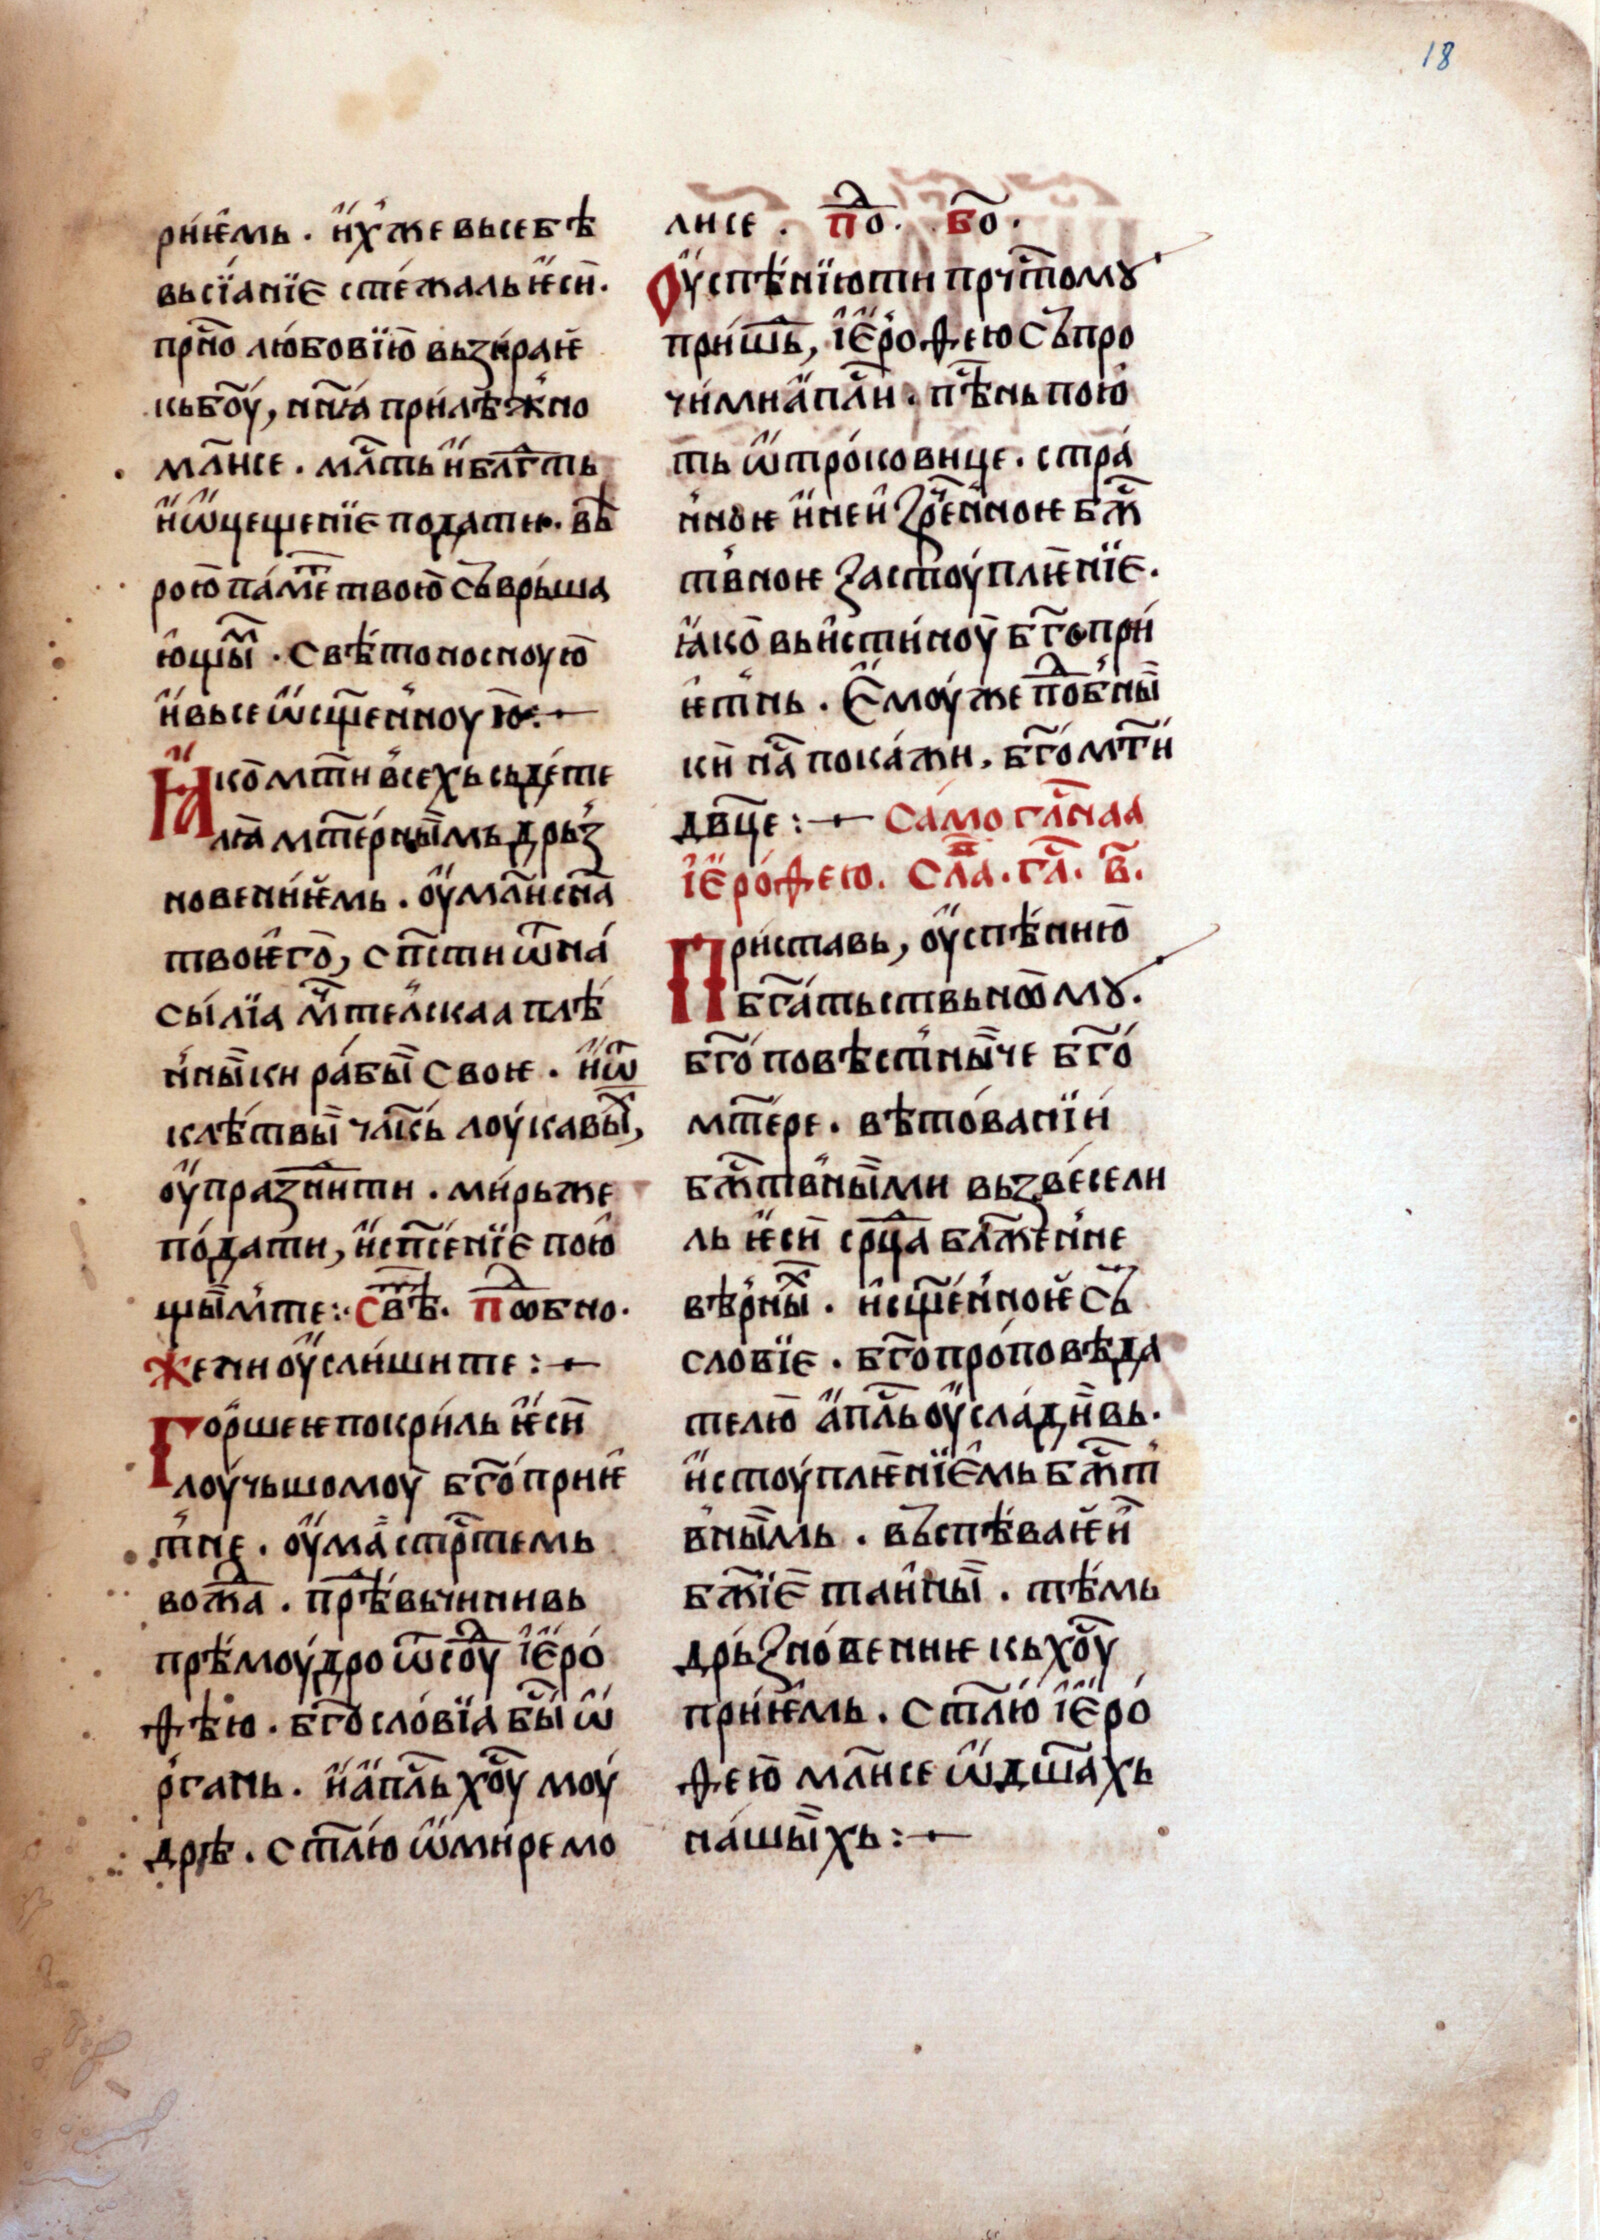 18
рнѥ́мь . и҆́хже вьсебѣ
вьсїа́нїѥ стежаль ѥ҆сн̀.
прⷭ҇но любовїю̀ вьзи́раѥ
кьбо҃у, нн҃ꙗ прилѣ́жно
мл҃исе . мл҃ть и҆бл҃гть
и҆ѡ҆цещенїѥ податн. вѣ
рою̀ па́меть твою̀ съврьша
ю҆щы̏м . свѣ́тоносноую̀
и҆вьсе ѡ҆сщ҃е́нноую̀:⁓
Ꙗко̀мт҃и всехь сьде́те
лꙗ̀ мт҃ерны̏мь дрьз
новени́ѥмь . оу҆мл҃исн҃а
твоѥго̀, сп҃сти ѿна́
сы́лїа мч҃телскаа плѣ́
нны̏ки ра́бы̏ своѥ . и҆ѿ
клѣ́твы̏ чл҃кь лоу́кавы̏х,
оу҆празннти . ми́рьже
по́дати, и҆сп҃се́нїѥ пою҆
щы̏мте:· свѣ. поⷣбно.
Жени оу҆слишите :⁓
Гоꙗршеѥ покри́ль ѥ҆сн̀
лоу́чьшомоу̀ бг҃опри́ѥ
тне . оу҆ма̀ стрⷭ҇темь
вожⷣа . прѣ́вычннивь
прѣ́моу́дро ѿсоуⷣ їѥ҆ро́
ѳѣю . бг҃осло́вїа бы̏ ѡ҆
рга́нь . и҆а҆плⷭ҇ь хо҃у моу́
дрѣ . ст҃лю ѡ҆ми́ре мо
лисе . поⷣ. бо҃.
Оу҆спѣ́нїюти прчⷭ҇томꙋ
при́шⷣь, їѥ҆ро́ѳею съпро
чи́мн а҆плⷭ҇и . пѣ́снь пою҆
ть ѡ҆тро́ковнце . стра́
нноѥ и҆неи҆зре́нноѥ бжⷭ҇
твноѥ застоу́плѥ́нїѥ .
ꙗ҆ко̀ вьи҆стиноу̀ бг҃опри́
ѥтнь . Е҆моу́же поⷣбны̏
кн̀ на̀ покажи . бг҃ом҃ти
дв҃це :⁓ Са́могла́снаа
їѥ҆ро́ѳею . сла . гл҃. в҃.
Приставь, оу҆спѣ́нию̀
бг҃а́тьствьномꙋ .
бг҃оповѣстны̏че бг҃о
мт҃ере . вѣто́ванїи
бжⷭ҇твны̏ми вьзве́сели
ль ѥ҆сн̀ срⷣца блже́нне
вѣ́рны̏х . и҆сщ҃е́нноѥ съ
сло́вїѥ . бг҃опро́повѣда
телю̀ а҆плⷭ҇ь оу҆сладн̀вь .
и҆стоу́плѥ́нїѥмь бжⷭ҇т
вны̏мь . въспѣваѥ и҆
бж҃їѥ таи҆ны̏ . тѣ́мь
дрь́зно́вениѥ кьхо҃у
при́ѥ́мь . ст҃лю їѥ҆ро́
ѳею̀ мл҃исе ѡ҆дш҃ахь
на́шы̏хь :⁓